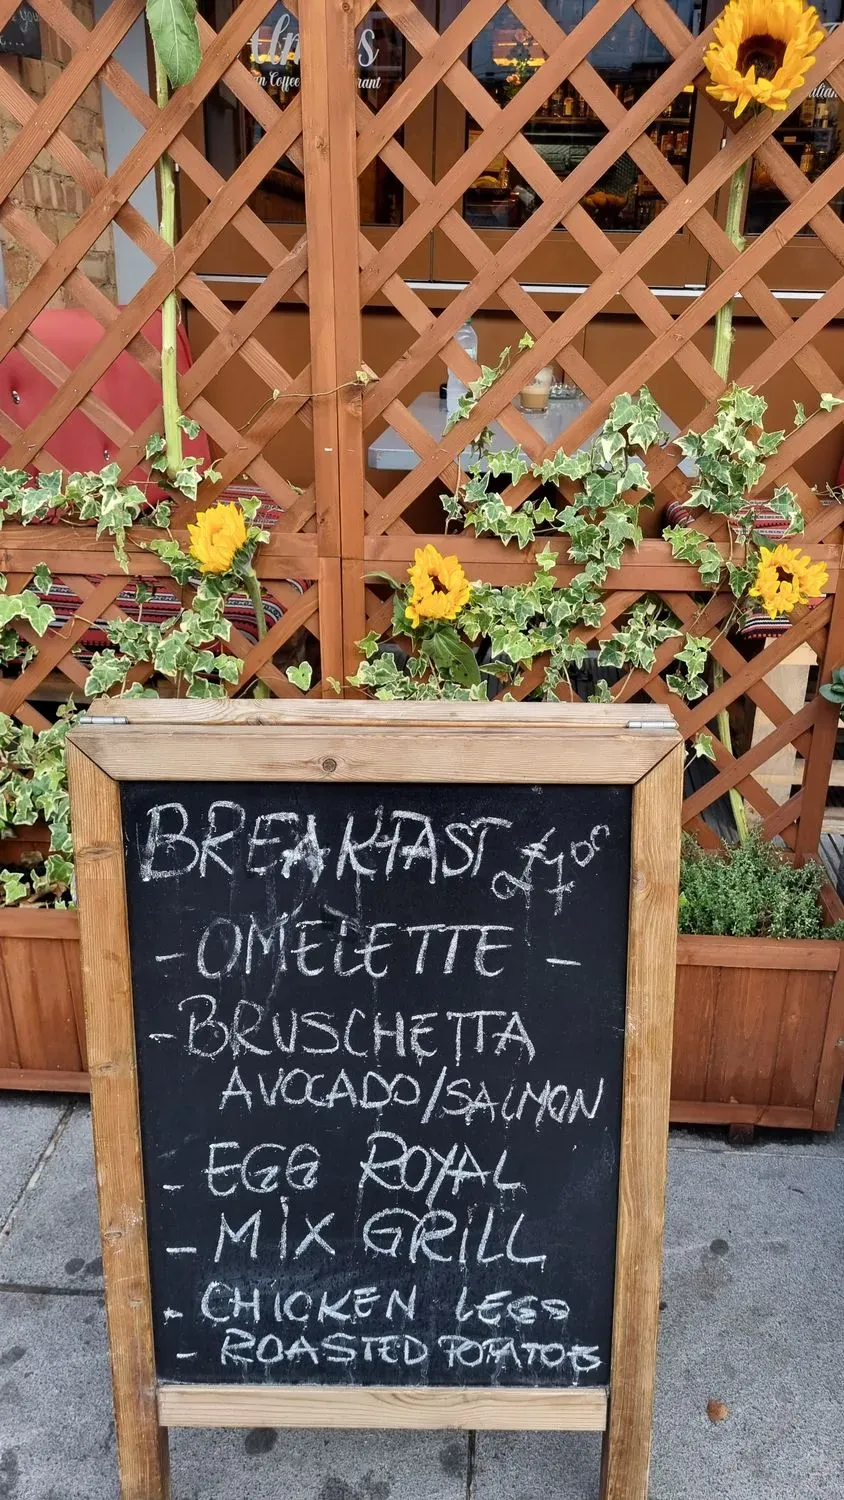 BREAKFAST £7
- OMELETTE -
- BRUSCHETTA
AVOCADO/SALMON
- EGG ROYAL
- MIX GRILL
- CHICKEN LEGS
- ROASTED POTATOES